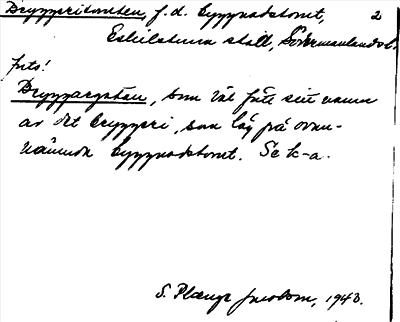 Bryggerigatan, f.d. byggnadstomt, 2
Eskilstuna stad, Södermanlands l.
foto!
Bryggargatan, som väl fått sitt namn
av det bryggeri, som låg på ovan-
nämnda byggnadstomt. Se k-a.
S. Plænge Jacobson, 1943.